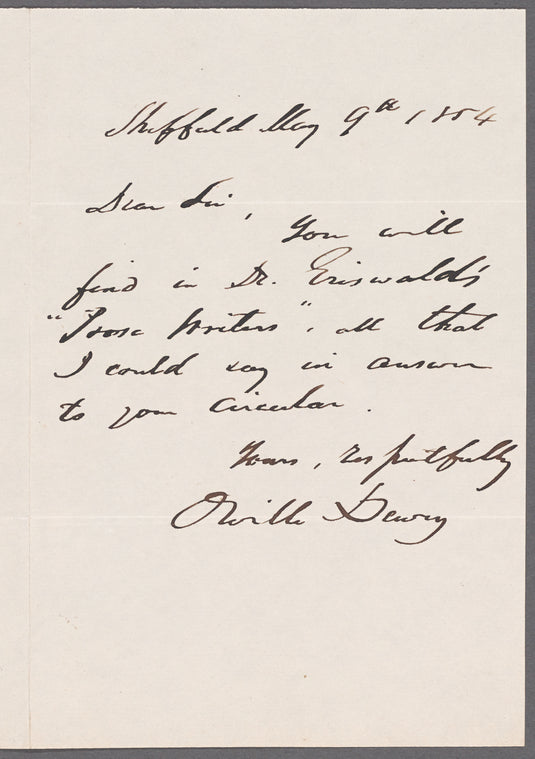 Sheffield May 9th 1854
Dear Sir,
You will
find in Dr. Griswald's
"Prose Writers", all that
I could say in answer
to your circular.
Yours, respectfully
Orville Dewey